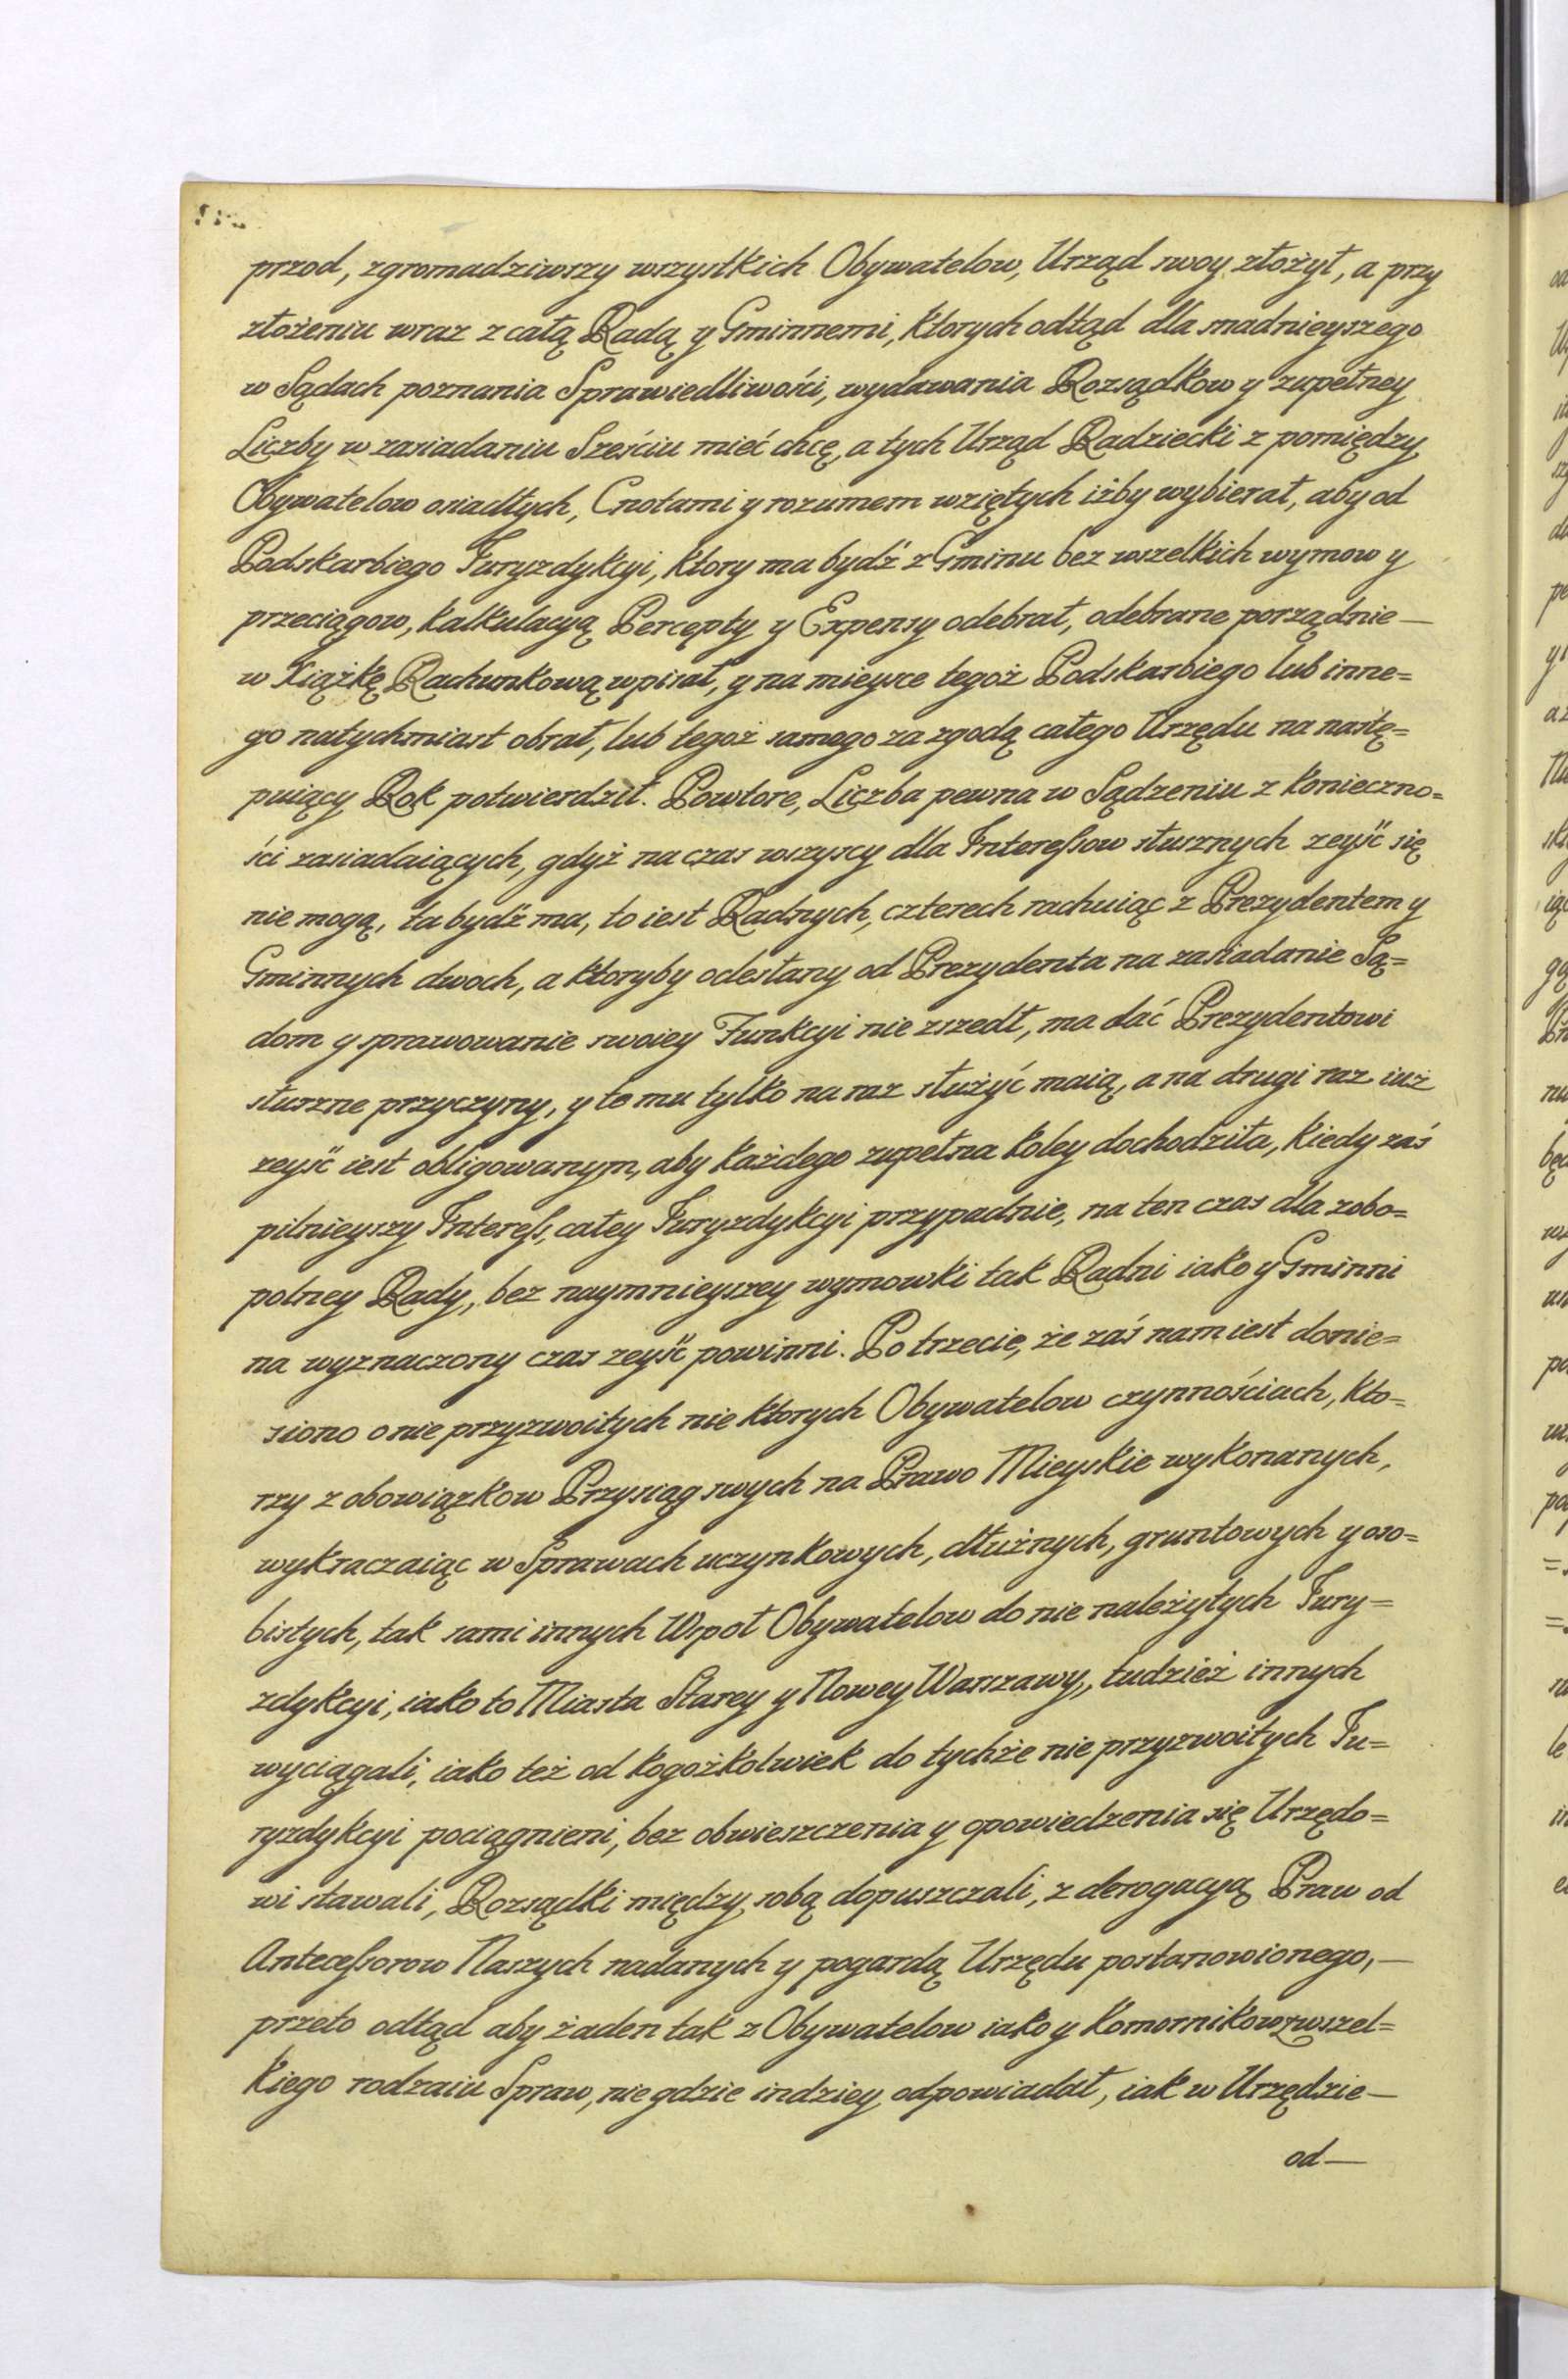 przod, zgromadziwszy wszystkich Obywatelow, Urząd swoy złożył, a przy
złożeniu wraz z całą Radą y Gminnemi, ktorych odtąd dla snadnieyszego
w Sądach poznania Sprawiedliwości, wydawania Rozsądkow y zupełney
Liczby w zasiadaniu Sześciu mieć chcę, a tych Urząd Radziecki z pomiędzy
Obywatelow osiadłych, Cnotami y rozumem wziętych iżby wybierał, aby od
Podskarbiego Juryzdykcyi, ktory ma bydź z Gminu bez wszelkich wymow y
przeciągow, kalkulacyą Percepty y Expensy odebrał, odebrane porządnie —
w Xiążkę Rachunkową wpisał, y na mieysce tegoż Podskarbiego lub inne=
go natychmiast obrał, lub tegoż samego za zgodą całego Urzędu na nastę=
puiący Rok potwierdził. Powtore, Liczba pewna w Sądzeniu z konieczno=
ści zasiadaiących, gdyż na czas wszyscy dla Interessow słusznych zeyść się
nie mogą, ta bydź ma, to iest Radnych, czterech rachuiąc z Prezydentem y
Gminnych dwoch, a ktoryby odesłany od Prezydenta na zasiadanie Są=
dom y sprawowanie swoiey Funkcyi nie zszedł, ma dać Prezydentowi
słuszne przyczyny, y te mu tylko na raz służyć maią, a na drugi raz iuż
zeyść iest obligowanym, aby każdego zupełna koley dochodziła, kiedy zaś
pilnieyszy Interess, całey Juryzdykcyi przypadnie, na ten czas dla zobo=
polney Rady, bez naymnieyszey wymowki tak Radni iako y Gminni
na wyznaczony czas zeyść powinni. Po trzecie, że zaś nam iest donie=
siono o nie przyzwoitych nie ktorych Obywatelow czynnościach, kto=
rzy z obowiązkow Przysiąg swych na Prawo Mieyskie wykonanych,
wykraczaiąc w Sprawach uczynkowych, dłużnych, gruntowych y oso=
bistych, tak sami innych Wspoł Obywatelow do nie należytych Jury=
zdykcyi, iako to Miasta Starey y Nowey Warszawy, tudzież innych
wyciągali, iako też od kogożkolwiek do tychże nie przyzwoitych Ju=
ryzdykcyi pociągnieni, bez obwieszczenia y opowiedzenia się Urzędo=
wi stawali, Rozsądki między sobą dopuszczali, z derogacyą Praw od
Antecessorow Naszych nadanych y pogardą Urzędu postanowionego, —
przeto odtąd aby żaden tak z Obywatelow iako y Komornikow z wszel=
kiego rodzaiu Spraw, nie gdzie indziey odpowiadał, iak w Urzędzie —
od —